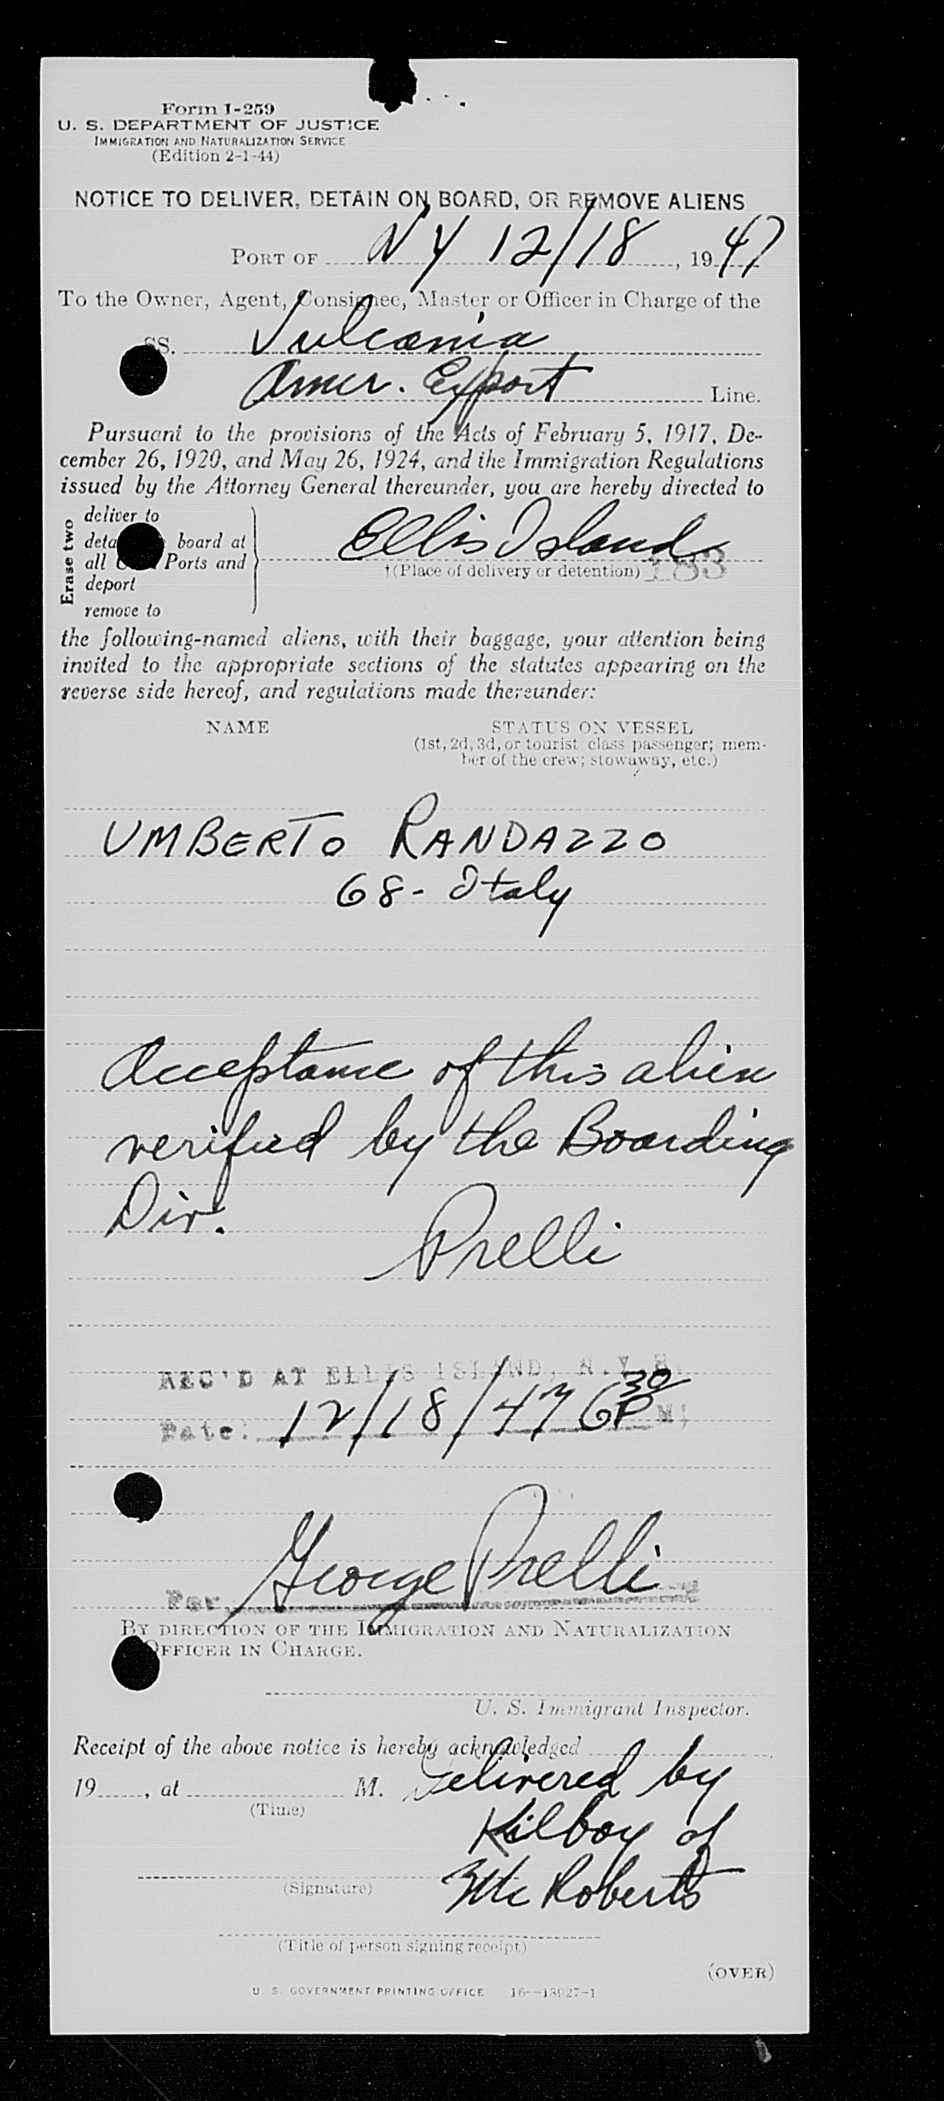 Form I-259
U. S. DEPARTMENT OF JUSTICE
IMMIGRATION AND NATURALIZATION SERVICE
(Edition 2-1-44)
NOTICE TO DELIVER, DETAIN ON BOARD, OR REMOVE ALIENS
PORT OF NY 12/18, 1947
To the Owner, Agent, Consignee, Master or Officer in Charge of the
SS. Vulcania
Amer. Export Line.
Pursuant to the provisions of the Acts of February 5, 1917, De-
cember 26, 1920, and May 26, 1924, and the Immigration Regulations
issued by the Attorney General thereunder, you are hereby directed to
Erase two
deliver to
board at
all Ports and
deport
remove to
Ellis Island
†(Place of delivery or detention) 183
the following-named aliens, with their baggage, your attention being
invited to the appropriate sections of the statutes appearing on the
reverse side hereof, and regulations made thereunder:
NAME STATUS ON VESSEL
(1st, 2d, 3d, or tourist class passenger; mem-
ber of the crew; stowaway, etc.)
UMBERTO RANDAZZO
68 - Italy
Acceptance of this alien
verified by the Boarding
Div.
Prelli
REC'D AT ELLIS ISLAND, N.Y.H.
Date: 12/18/47 6 30 P M;
Per George Prelli
BY DIRECTION OF THE IMMIGRATION AND NATURALIZATION
OFFICER IN CHARGE.
U. S. Immigrant Inspector.
Receipt of the above notice is hereby acknowledged
19, at M. Delivered by
(Time)
Kilboy of
McRoberts
(Signature)
(Title of person signing receipt)
(OVER)
U. S. GOVERNMENT PRINTING OFFICE 16—13927-1